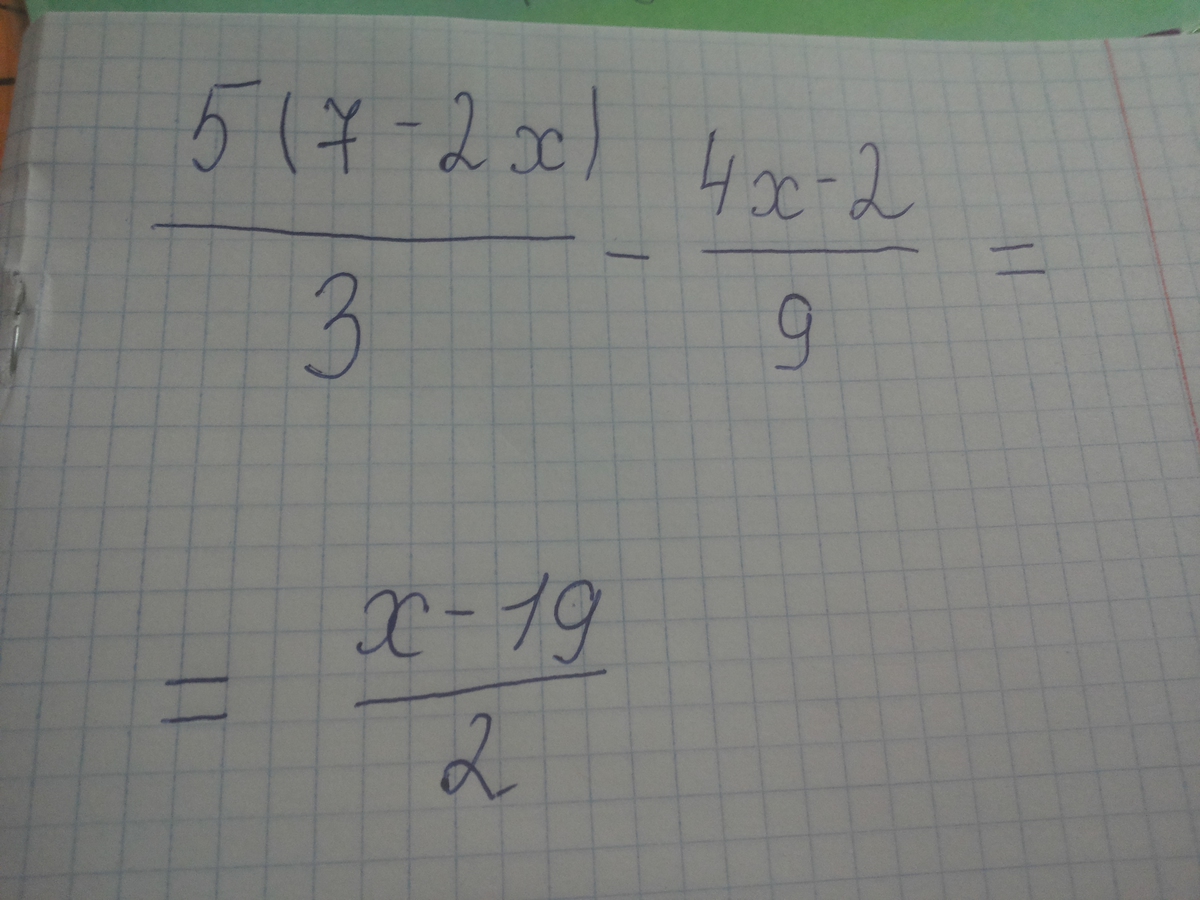 5(7-2x)/3 - 4x-2/9 =
= x-19/2